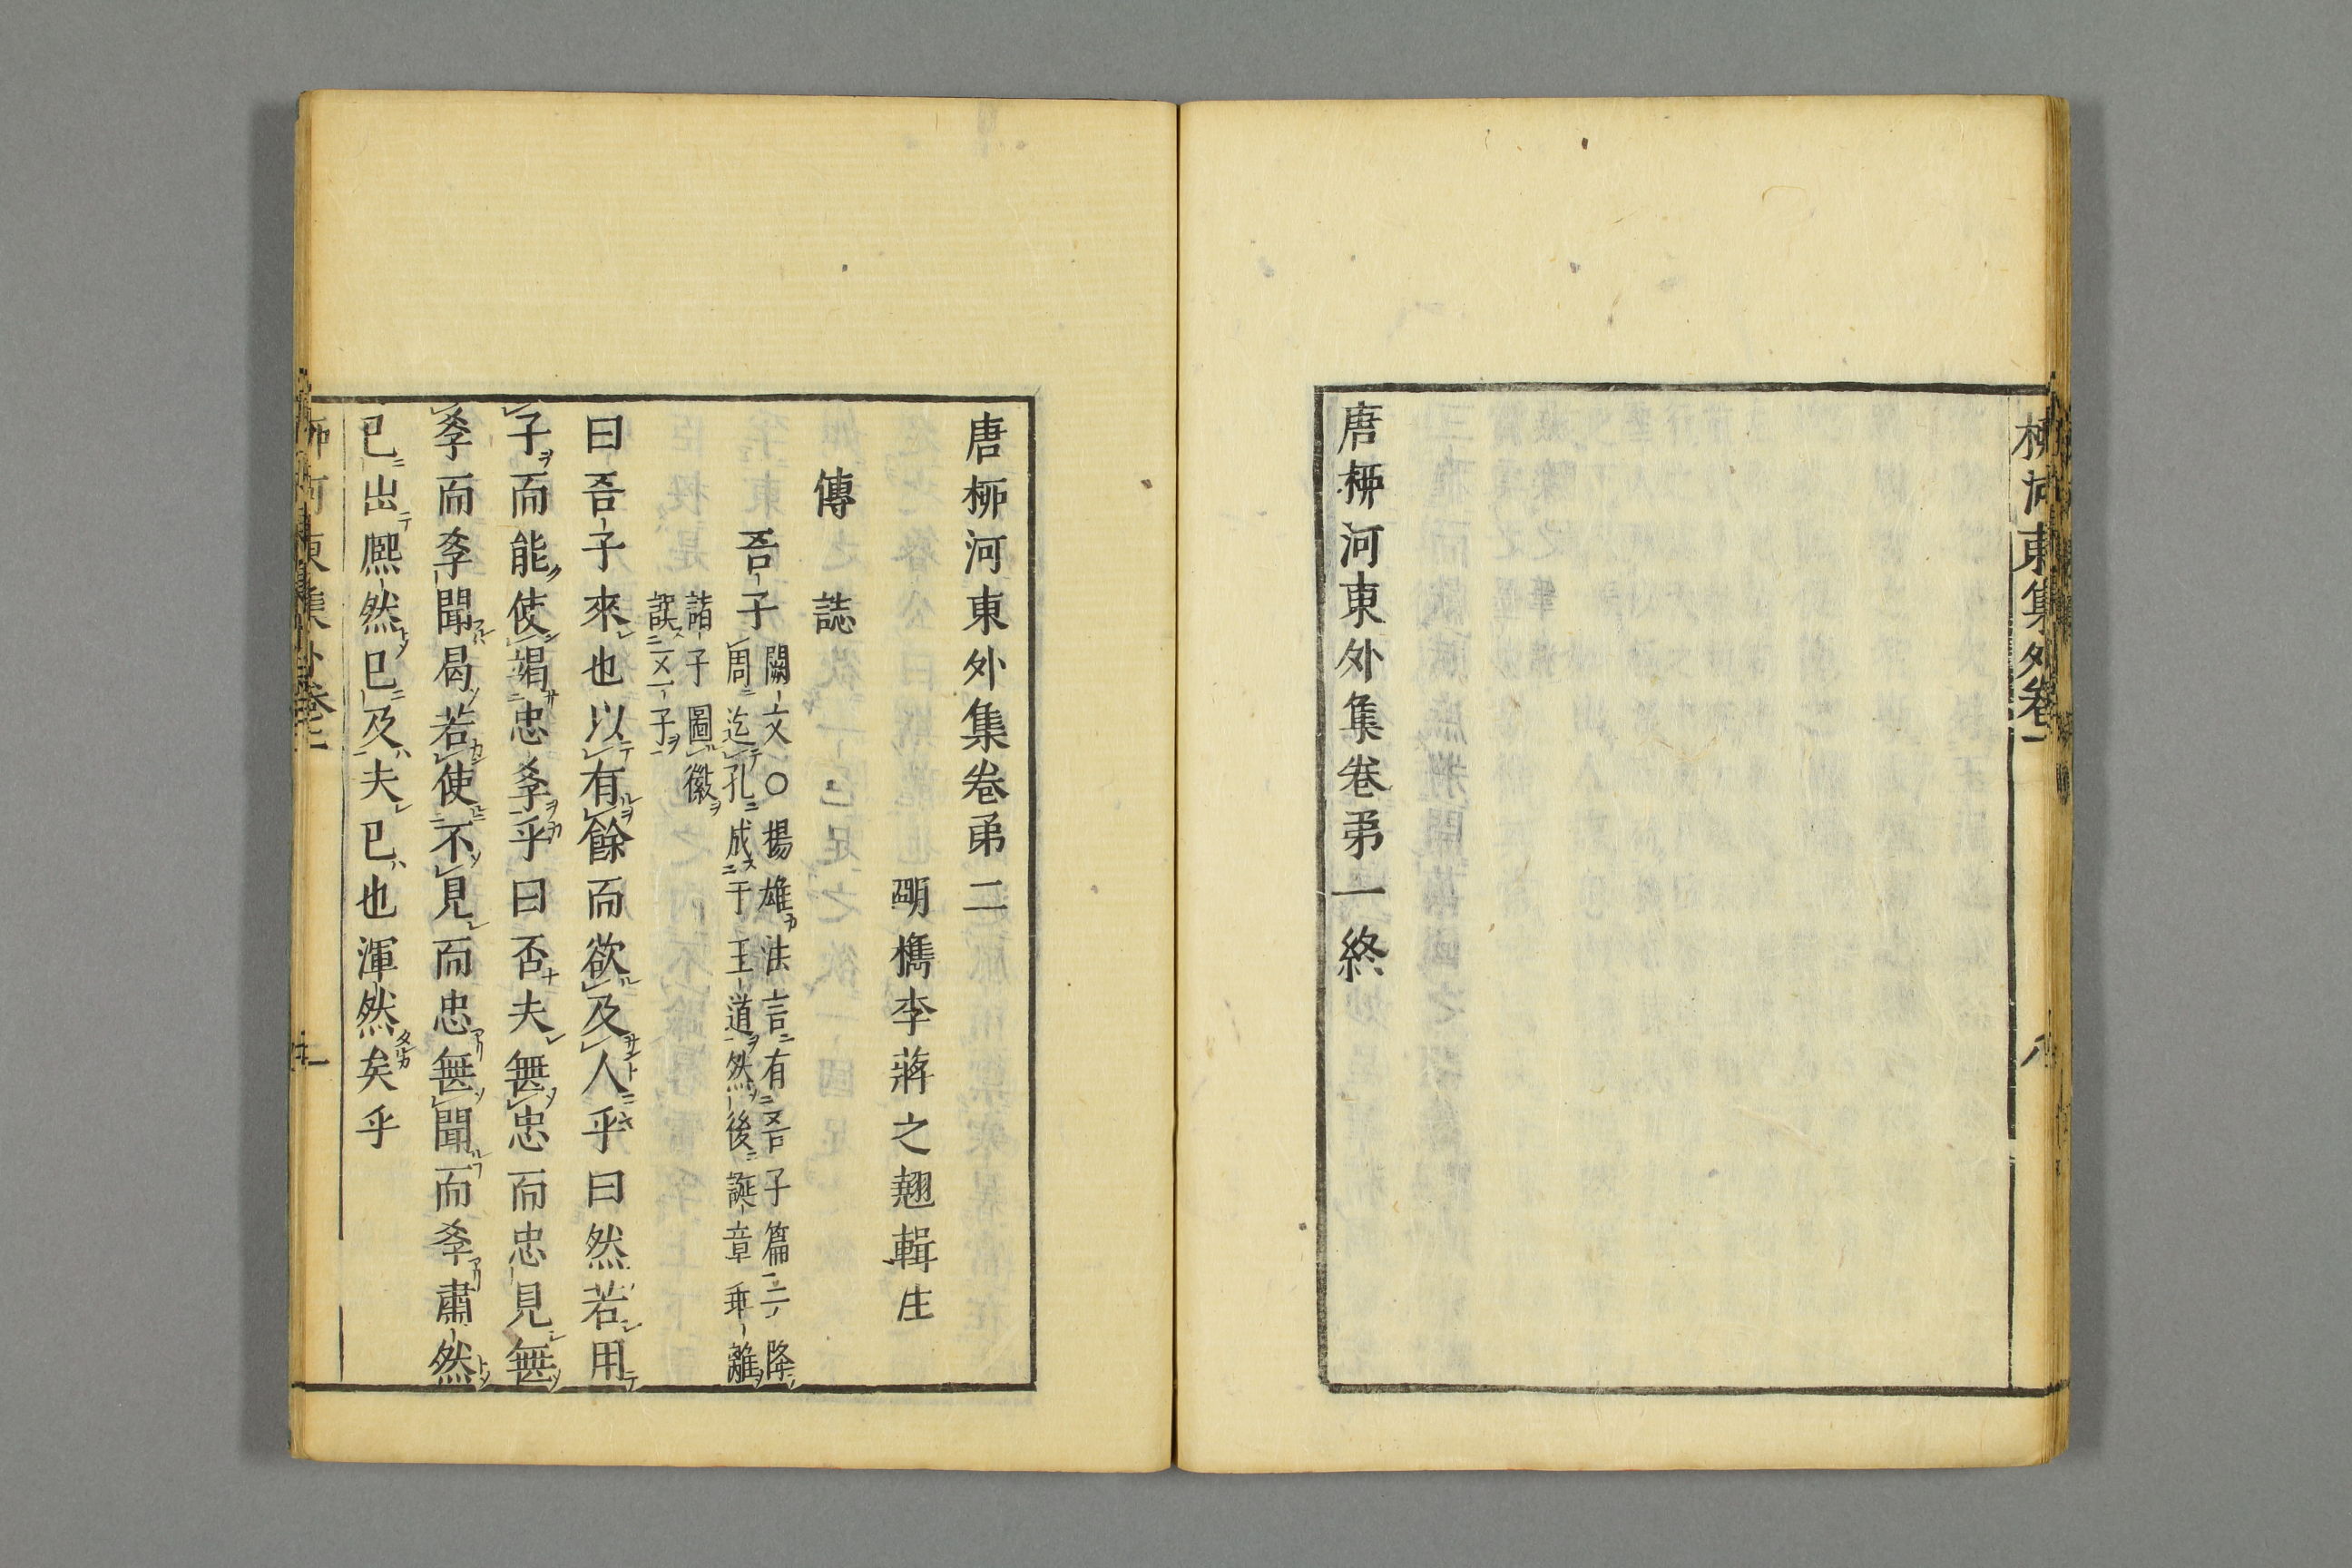 柳河東集外卷一
八
唐柳河東外集卷弟一終
唐柳河東外集卷弟二
明檇李蔣之翹輯注
傳誌
吾子
闕文○揚雄法言有吾子篇二降
周迄孔成于王道然後誕章乖離
諸子圖徽
譔二乂一子
曰吾子來也以有餘而欲及人乎曰然若用
子而能使竭忠孝乎曰否夫無忠而忠見無
孝而孝聞曷若使不見而忠無聞而孝肅然
已出熙然已及夫已也渾然矣乎
柳河東集外卷二
一